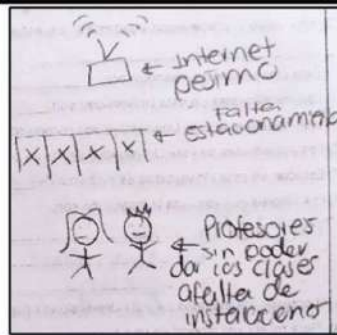 Internet
pesimo
Falta
estacionamiento
Profesores
sin poder
dar las clases
a falta de